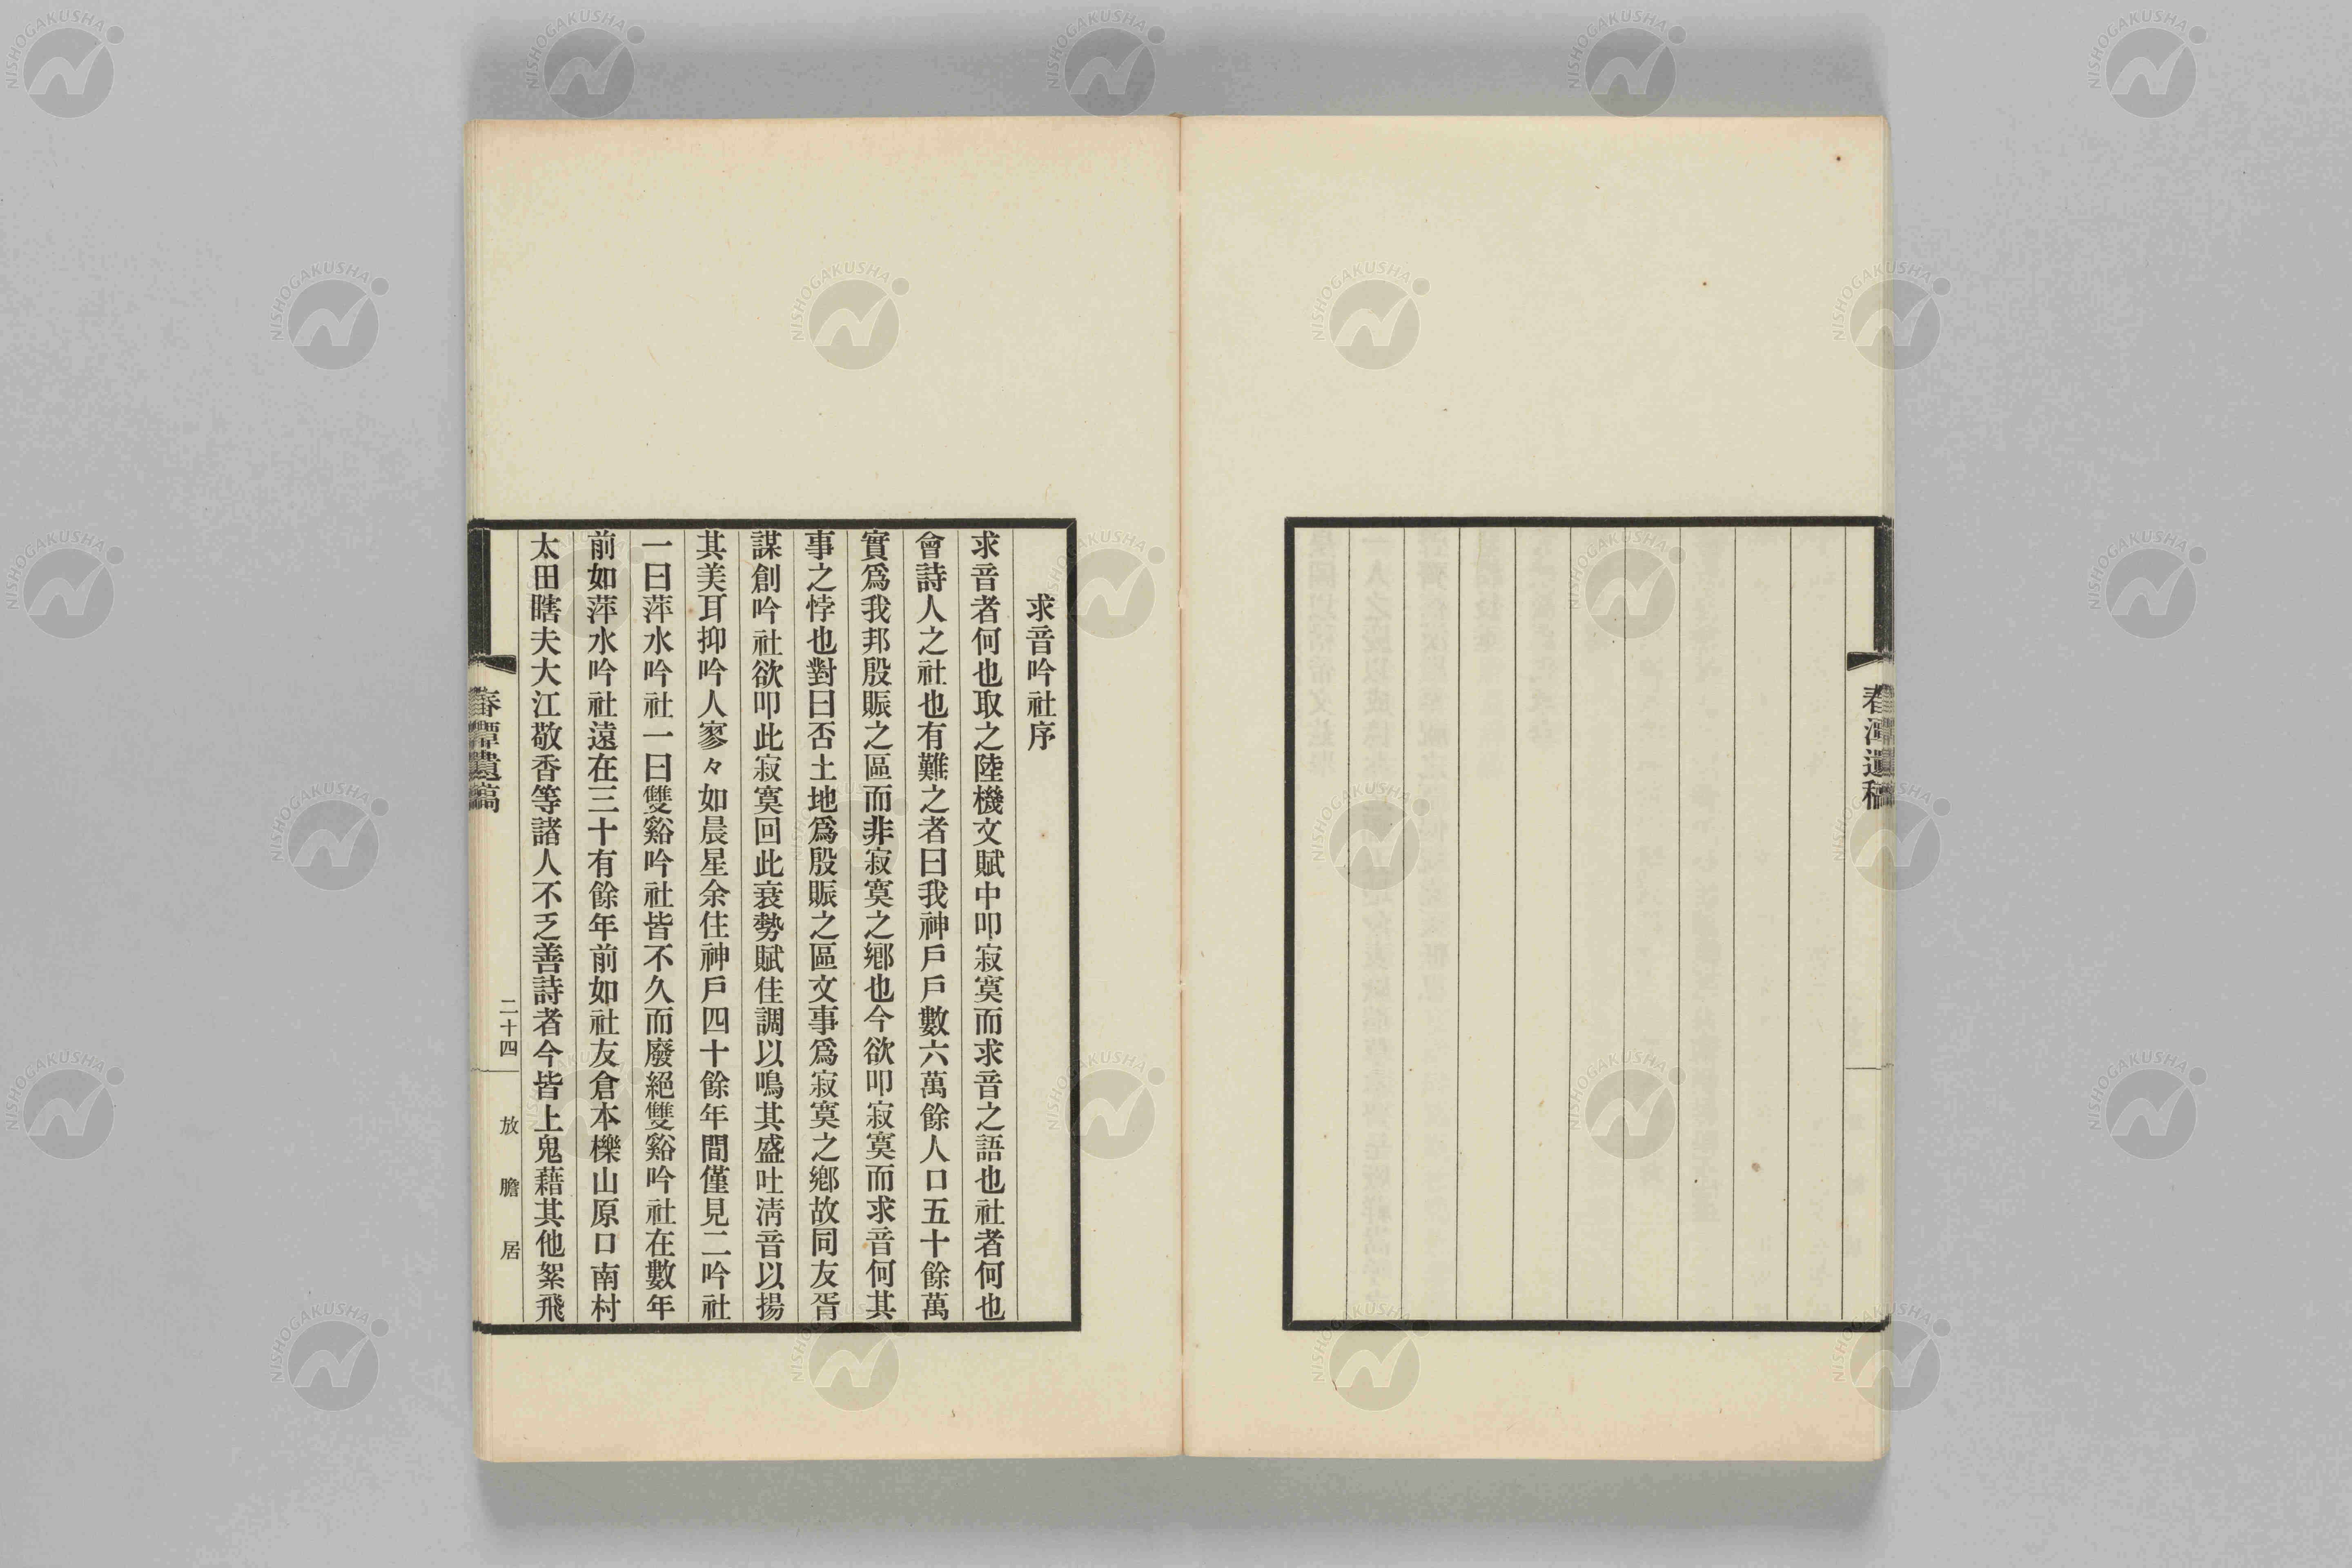 春潭遺稿
求音吟社序
求音者何也取之陸機文賦中叩寂寞而求音之語也社者何也
會詩人之社也有難之者曰我神戶戶數六萬餘人口五十餘萬
實爲我邦殷賑之區而非寂寞之鄕也今欲叩寂寞而求音何其
事之悖也對曰否土地爲殷賑之區文事爲寂寞之鄕故同友胥
謀創吟社欲叩此寂寞回此衰勢賦佳調以鳴其盛吐淸音以揚
其美耳抑吟人寥々如晨星余住神戶四十餘年間僅見二吟社
一曰萍水吟社一曰雙谿吟社皆不久而廢絕雙谿吟社在數年
前如萍水吟社遠在三十有餘年前如社友倉本櫟山原口南村
太田瞎夫大江敬香等諸人不乏善詩者今皆上鬼藉其他絮飛
春潭遺稿
二十四
放膽居